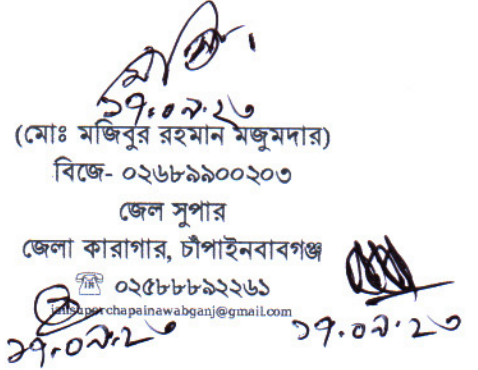 ১৭.০৯.২৩
(মোঃ মজিবুর রহমান মজুমদার)
বিজে- ০২৬৮৯৯০০২০৩
জেল সুপার
জেলা কারাগার, চাঁপাইনবাবগঞ্জ
☏ ০২৫৮৮৮৯২২৬১
jailsuperchapainawabganj@gmail.com
১৭.০৯.২৩ ১৭.০৯.২৩